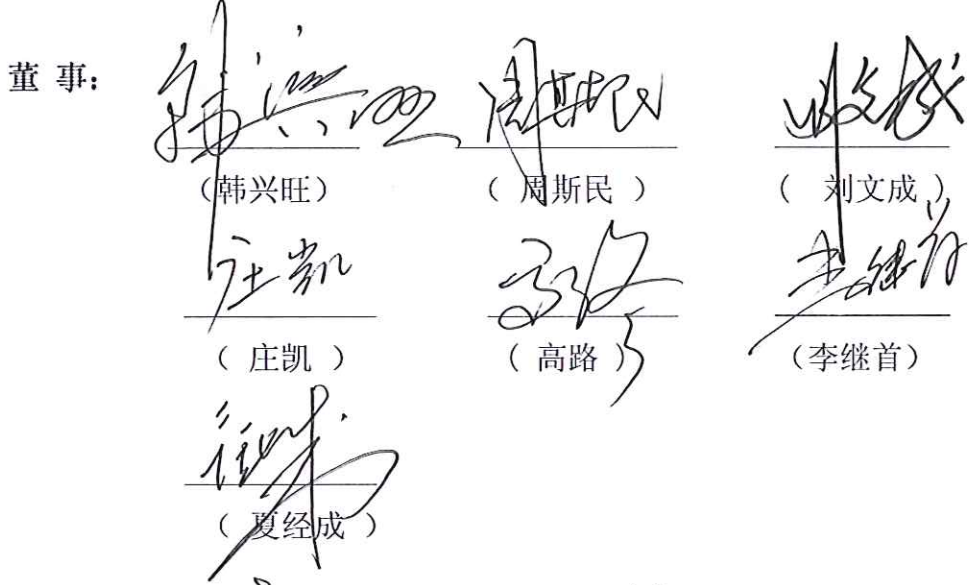 董 事：
韩兴旺 周斯民 刘文成
（韩兴旺） （ 周斯民 ） （ 刘文成 ）
庄凯 高路 李继首
（ 庄凯 ） （ 高路 ） （李继首）
（ 夏经成 ）